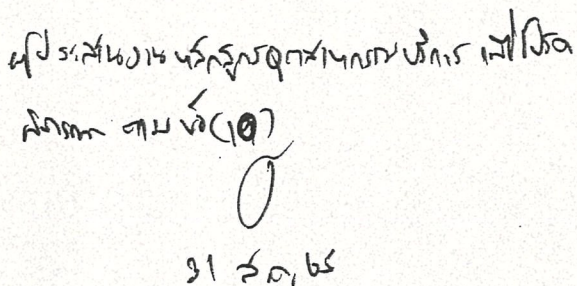 ผู้ประสานงานหลักสูตรอุตสาหกรรมบริการ เพื่อโปรด
พิจารณา ตามข้อ(1)
31 ส.ค. 65